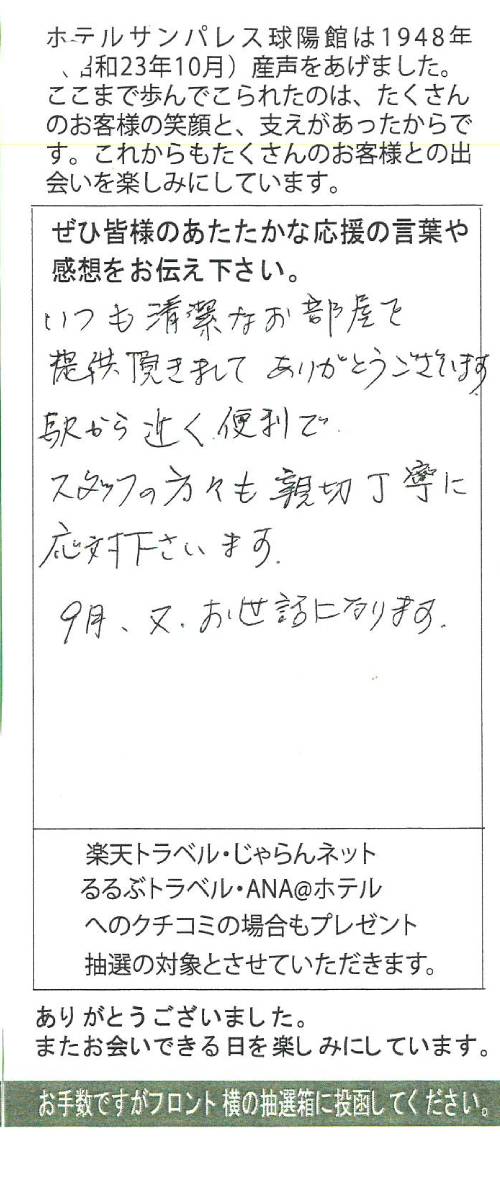 ホテルサンパレス球陽館は1948年
、昭和23年10月）産声をあげました。
ここまで歩んでこられたのは、たくさん
のお客様の笑顔と、支えがあったからで
す。これからもたくさんのお客様との出
会いを楽しみにしています。
ぜひ皆様のあたたかな応援の言葉や
感想をお伝え下さい。
いつも清潔なお部屋を
提供頂きまして ありがとうございます
駅から近く便利で
スタッフの方々も親切丁寧に
応対下さいます.
9月、又、お世話になります.
楽天トラベル・じゃらんネット
るるぶトラベル・ANA@ホテル
へのクチコミの場合もプレゼント
抽選の対象とさせていただきます。
ありがとうございました。
またお会いできる日を楽しみにしています。
お手数ですがフロント横の抽選箱に投函してください。